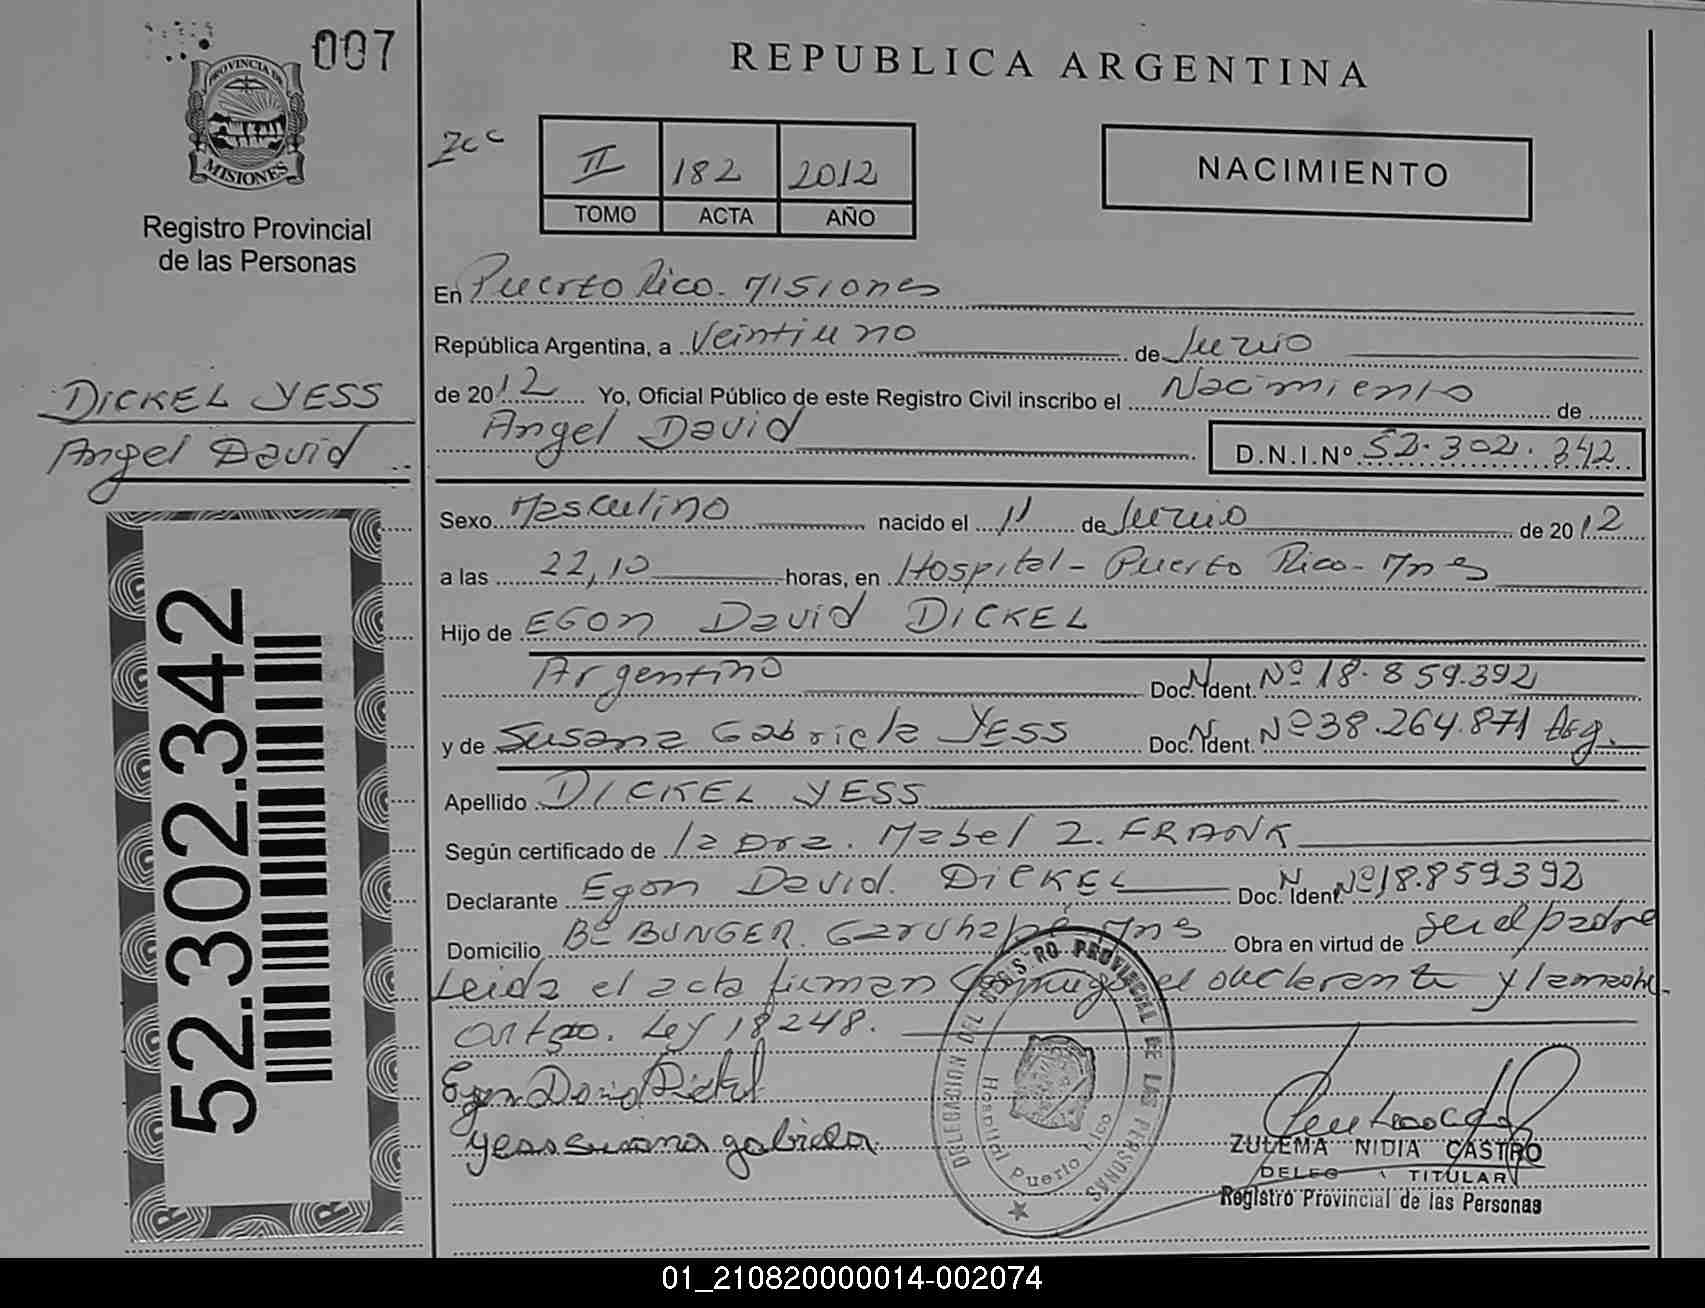 007
PROVINCIA DE
MISIONES
Registro Provincial
de las Personas
DICKEL YESS
Angel David
52.302.342
REPUBLICA ARGENTINA
II 182 2012
TOMO ACTA AÑO
NACIMIENTO
En Puerto Rico. Misiones
República Argentina, a Veintiuno de Junio
de 2012 Yo, Oficial Público de este Registro Civil inscribo el Nacimiento de
Angel David D.N.I.Nº 52.302.342
Sexo Masculino nacido el 11 de Junio de 2012
a las 22,10 horas, en Hospital - Puerto Rico - Mnes
Hijo de EGon David DICKEL
Argentino Doc. N. Ident. Nº 18.859.392
y de Susana Gabriela YESS Doc. N. Ident. Nº 38.264.871 Arg.
Apellido DICKEL YESS
Según certificado de la Dra. Mabel Z. FRANK
Declarante Egon David. DICKEL Doc. N. Ident. Nº 18.859392
Domicilio Bº BUNGER. Garuhapé Mnes Obra en virtud de ser el padre
Leida el acta firman conmigo el declarante y la madre
Ley 18248.
Egon David Dickel
yess susana gabriela
DELEGACION DEL REGISTRO PROVINCIAL DE LAS PERSONAS
Hospital Puerto Rico
ZULEMA NIDIA CASTRO
TITULAR
Registro Provincial de las Personas
01_210820000014-002074